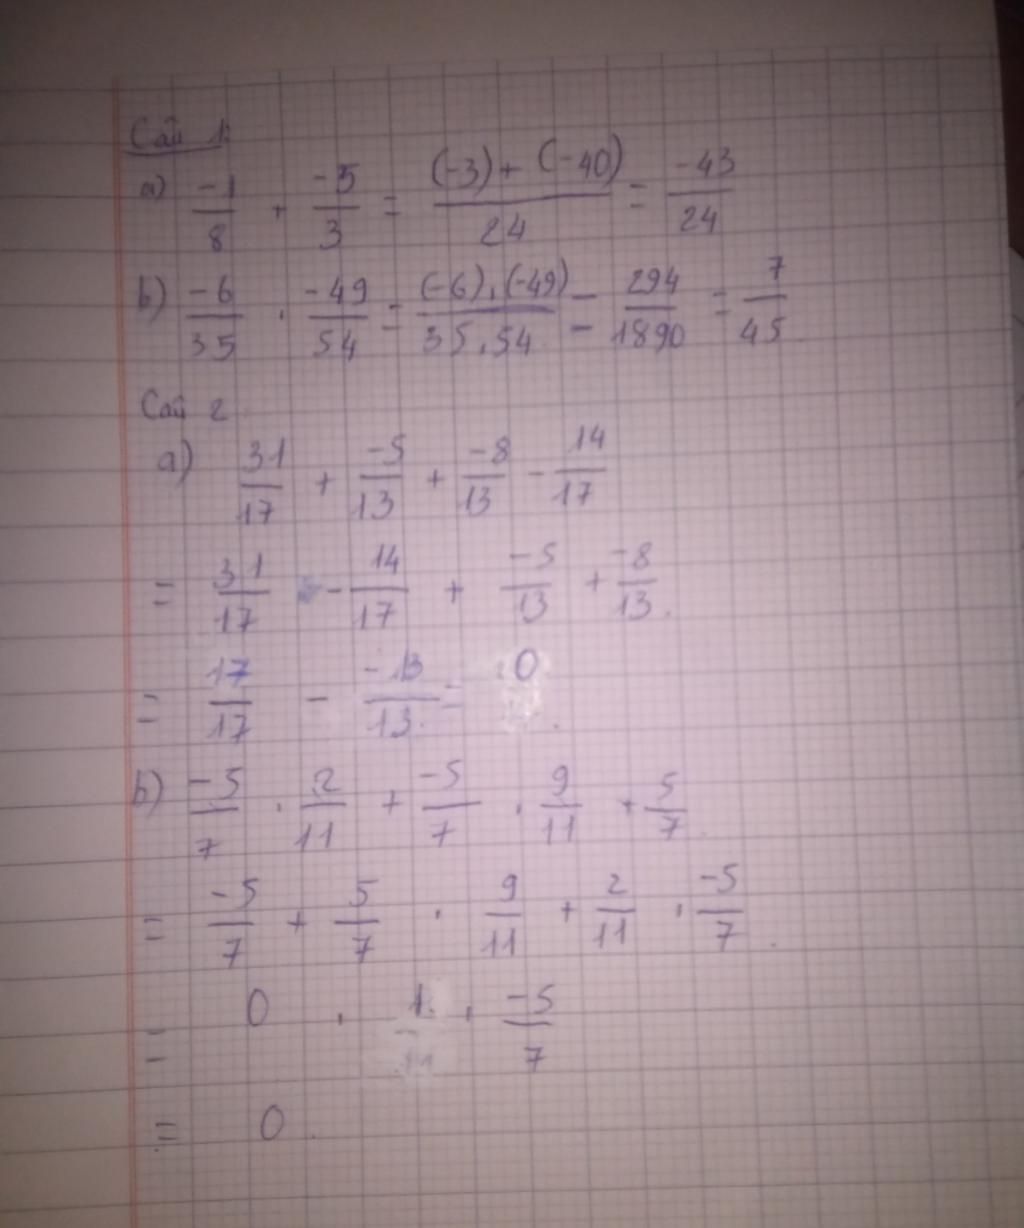 Câu 1:
a) -1/8 + -5/3 = (-3) + (-40)/24 = -43/24
b) -6/35 . -49/54 = (-6).(-49)/35.54 = 294/1890 = 7/45
Câu 2
a) 31/17 + -5/13 + -8/13 - 14/17
= 31/17 - 14/17 + -5/13 + -8/13.
= 17/17 - -13/13. = 0.
b) -5/7 . 2/11 + -5/7 . 9/11 + 5/7.
= -5/7 + 5/7 . 9/11 + 2/11 . -5/7.
= 0 . 1. . -5/7
= 0.